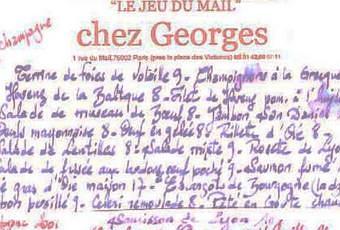 "LE JEU DU MAIL"
champagne
chez Georges
1 rue du Mail, 75002 Paris (près la place des Victoires)
Terrine de foies de volaille 9 - Champignons à la Grecque
Harengs de la Baltique 8 - Filet de Hareng pom. à l'huile
Salade de museau de Bœuf 8 - Jambon San Daniel
Œufs mayonnaise 8 - Œuf en gelée 8 - Rillette d'Oie 8
Salade de Lentilles 8 - Salade mixte 9 - Rosette de Lyon
Salade de frisée aux lardons, œuf poché 9 - Saumon fumé
gras d'Oie maison 17 - Escargots de Bourgogne (la dz
persillé 9 - Céleri rémoulade 8 - Pâté en croûte chau
Saucisson de Lyon